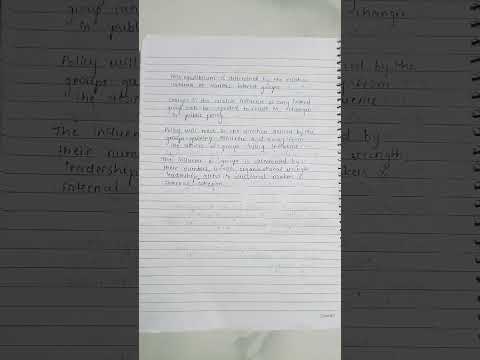 This equilibrium is determined by the relative
influence of various interest groups.
Changes in the relative influence of any interest
group can be expected to result in changes
in public policy.
Policy will move in the direction desired by the
groups gaining influence and away from
the desires of groups losing influence.
The influence of groups is determined by
their numbers, wealth, organizational strength
leadership, access to decisional makers &
internal cohesion.